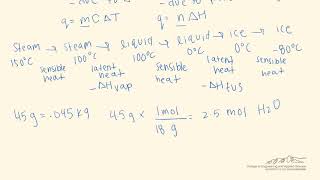 - due to p
q = mCΔT q = nΔH
steam → steam → liquid → liquid → ice → ice
150°C 100°C 100°C 0°C 0°C -80°C
sensible heat latent heat sensible heat latent heat sensible heat
-ΔHvap -ΔHfus
45g = .045 kg 45g x 1mol / 18 g = 2.5 mol H2O